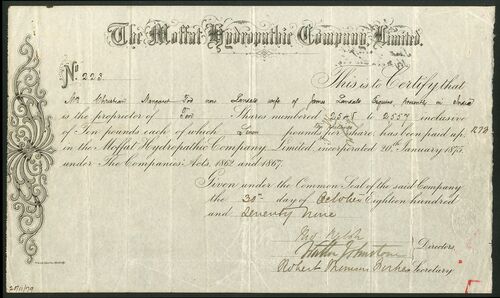 The Moffat Hydropathic Company, Limited.
No. 223
This is to Certify that
Mrs Christian Margaret Tod now wife of James Esquire, presently in India
is the proprietor of Ten Shares numbered 2548 to 2557 inclusive
of Ten pounds each of which pounds share, has been paid up,
in the Moffat Hydropathic Company Limited, incorporated 20th January 1875,
under The Companies' Acts, 1862 and 1867.
Given under the Common Seal of the said Company
the 30th day of October Eighteen hundred
and Seventy Nine
Directors,
Johnstone
Robert Secretary.